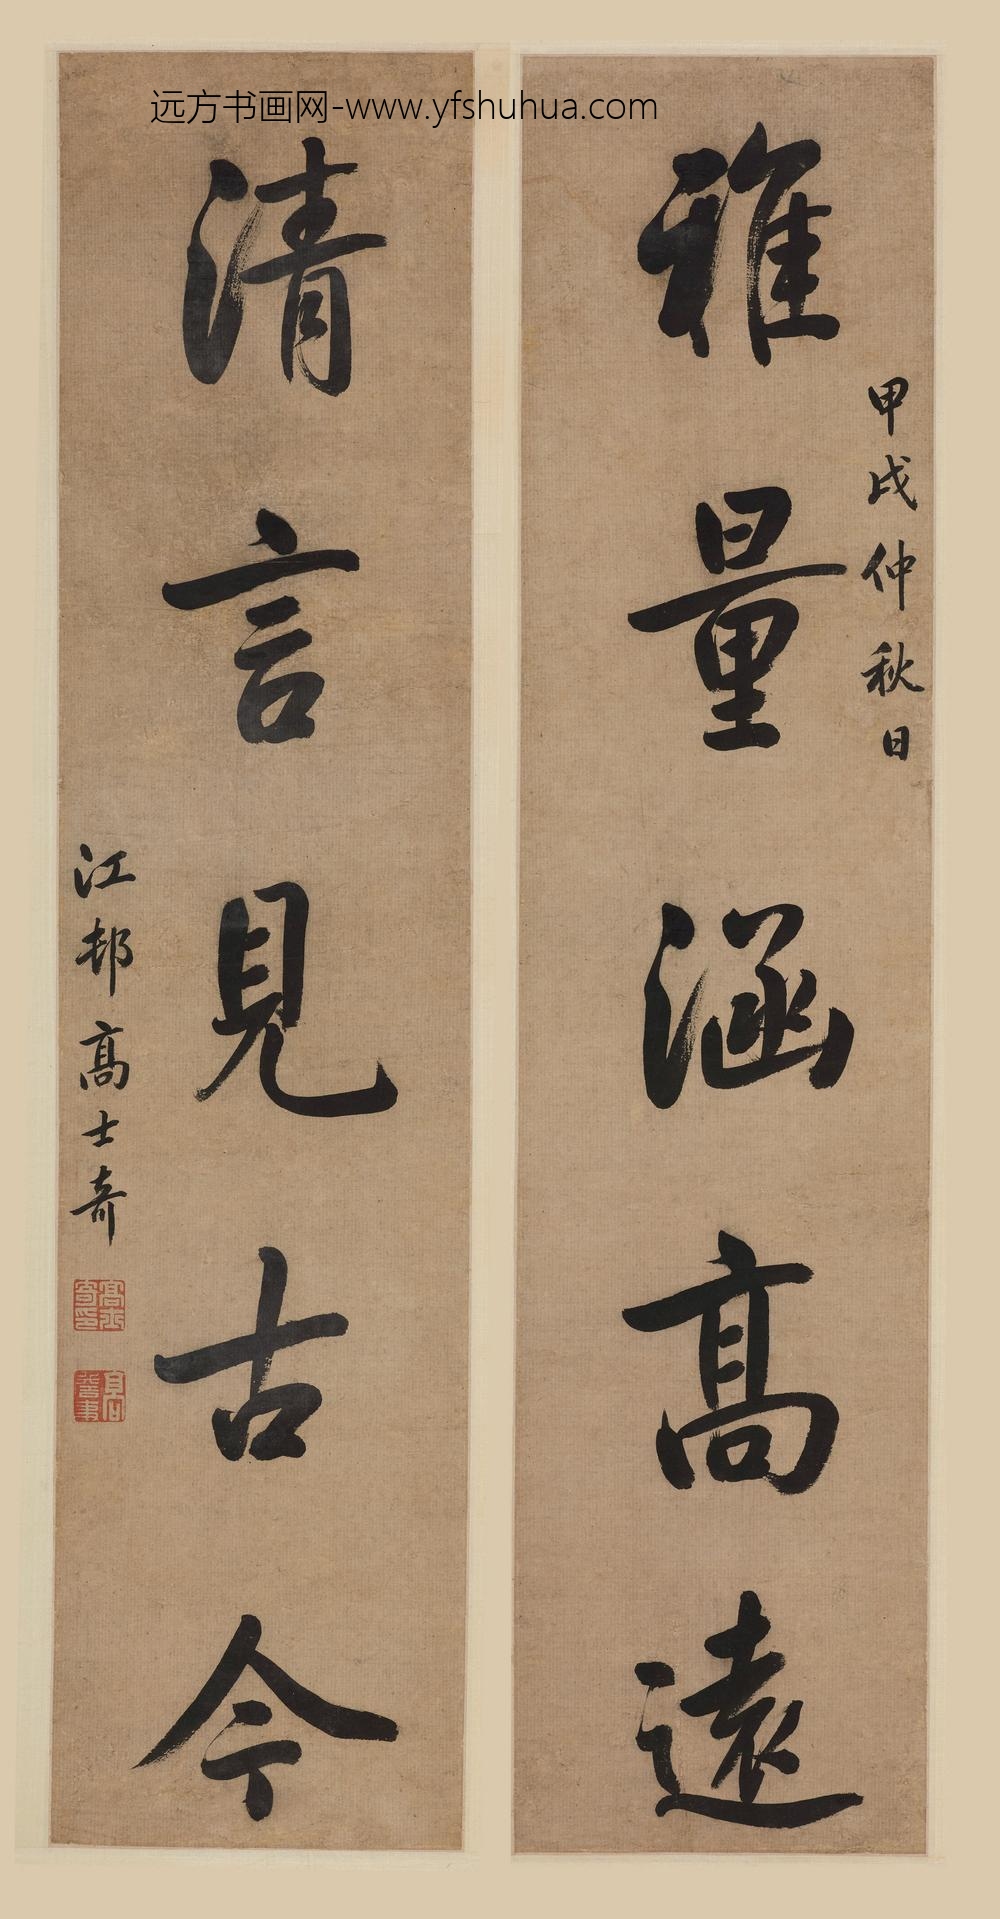 远方书画网-www.yfshuhua.com
甲戌仲秋日
雅量涵高遠
清言見古今
江邨高士奇
高士奇印